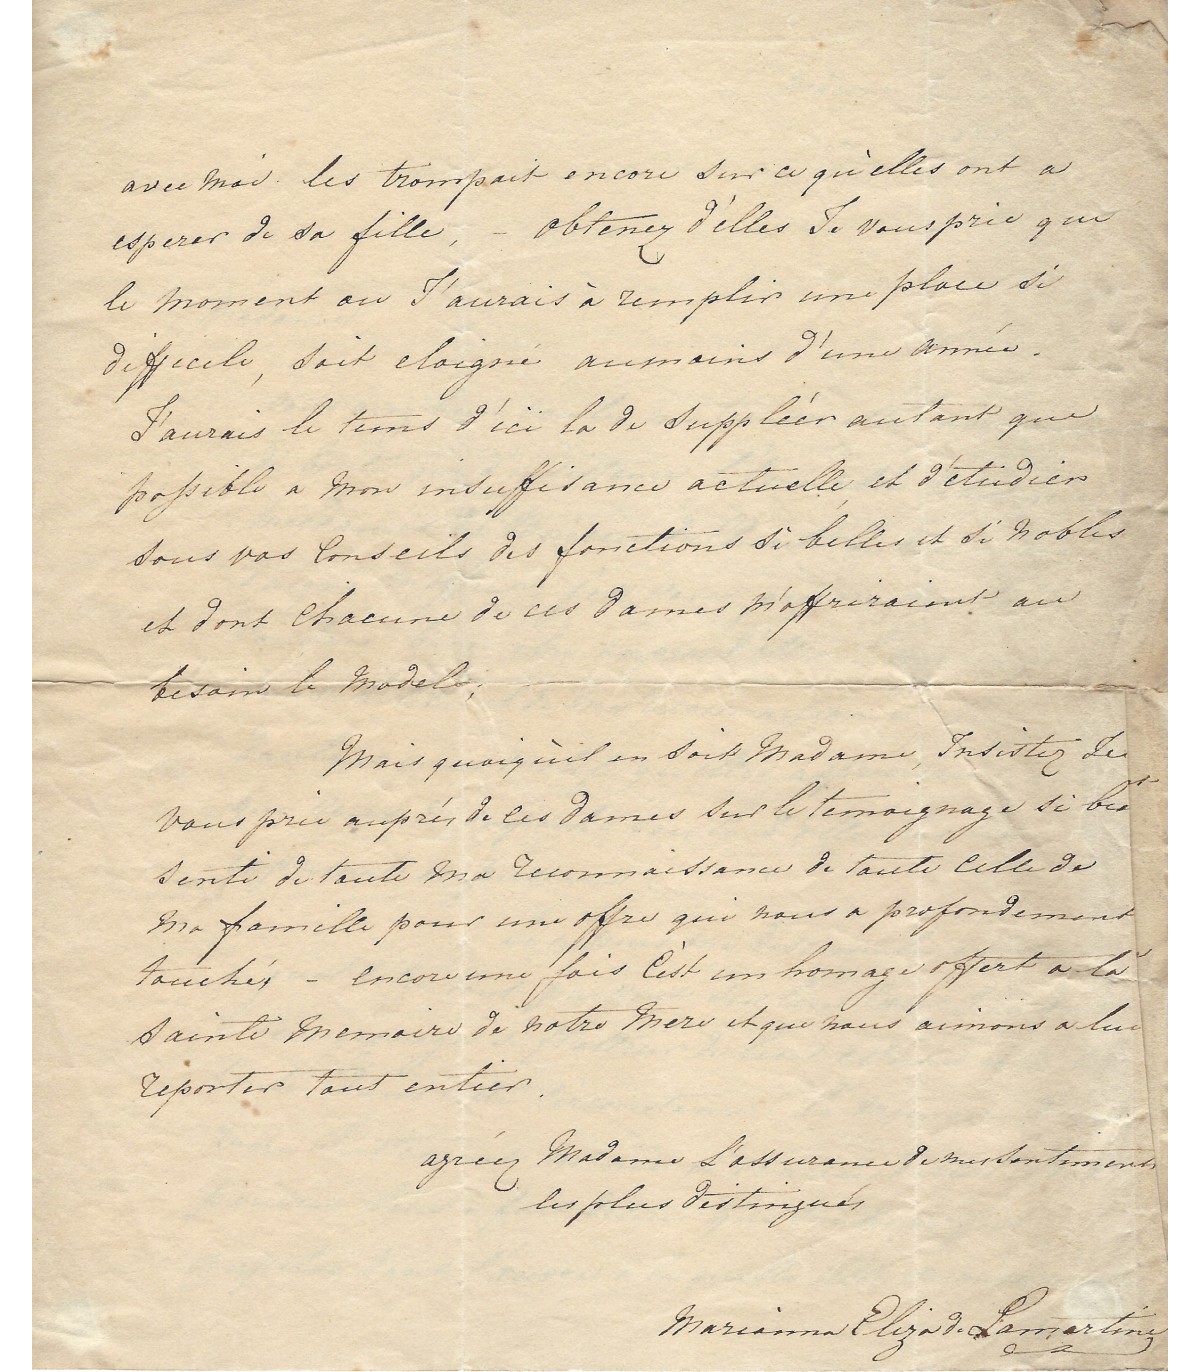 avec moi les trompait encore sur ce qu'elles ont a
esperer de sa fille, – obtenez d'elles Je vous prie que
le moment ou J'aurais à remplir une place si
difficile, soit eloigné aumoins d'une année.
J'aurais le tems d'ici la de suppléer autant que
possible a mon insuffisance actuelle, et d'étudier
sous vos Conseils des fonctions si belles et si nobles
et dont chacune de ces dames m'offriraient au
besoin le modele,
Mais quoiqu'il en soit Madame, Insistez Je
vous prie auprés de ces dames sur le temoignage si bien
senti de toute ma reconnaissance de toute celle de
ma famille pour une offre qui nous a profondement
touchés – encore une fois C'est un homage offert a la
sainte memoire de notre Mere et que nous aimons a lui
reporter tout entier.
agréez Madame L'assurance de mes sentiments
les plus distingués
Marianna Eliza de Lamartine